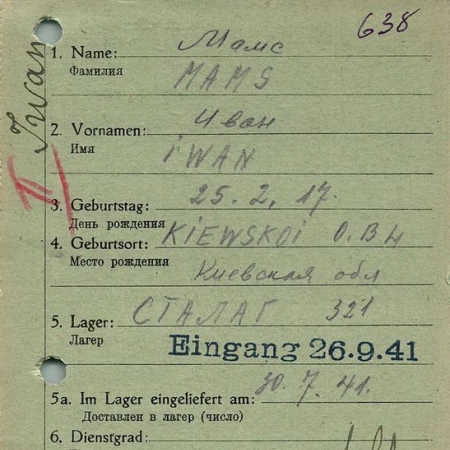 638
Iwan
Мамс
1. Name:
Фамилия
MAMS
Иван
2. Vornamen:
Имя
IWAN
II
3. Geburtstag: 25. 2. 17.
День рождения
4. Geburtsort: KIEWSKOI OBL
Место рождения
Киевская обл
5. Lager: СТАЛАГ 321
Лагер
Eingang 26.9.41
5a. Im Lager eingeliefert am: 30. 7. 41.
Доставлен в лагер (число)
6. Dienstgrad: